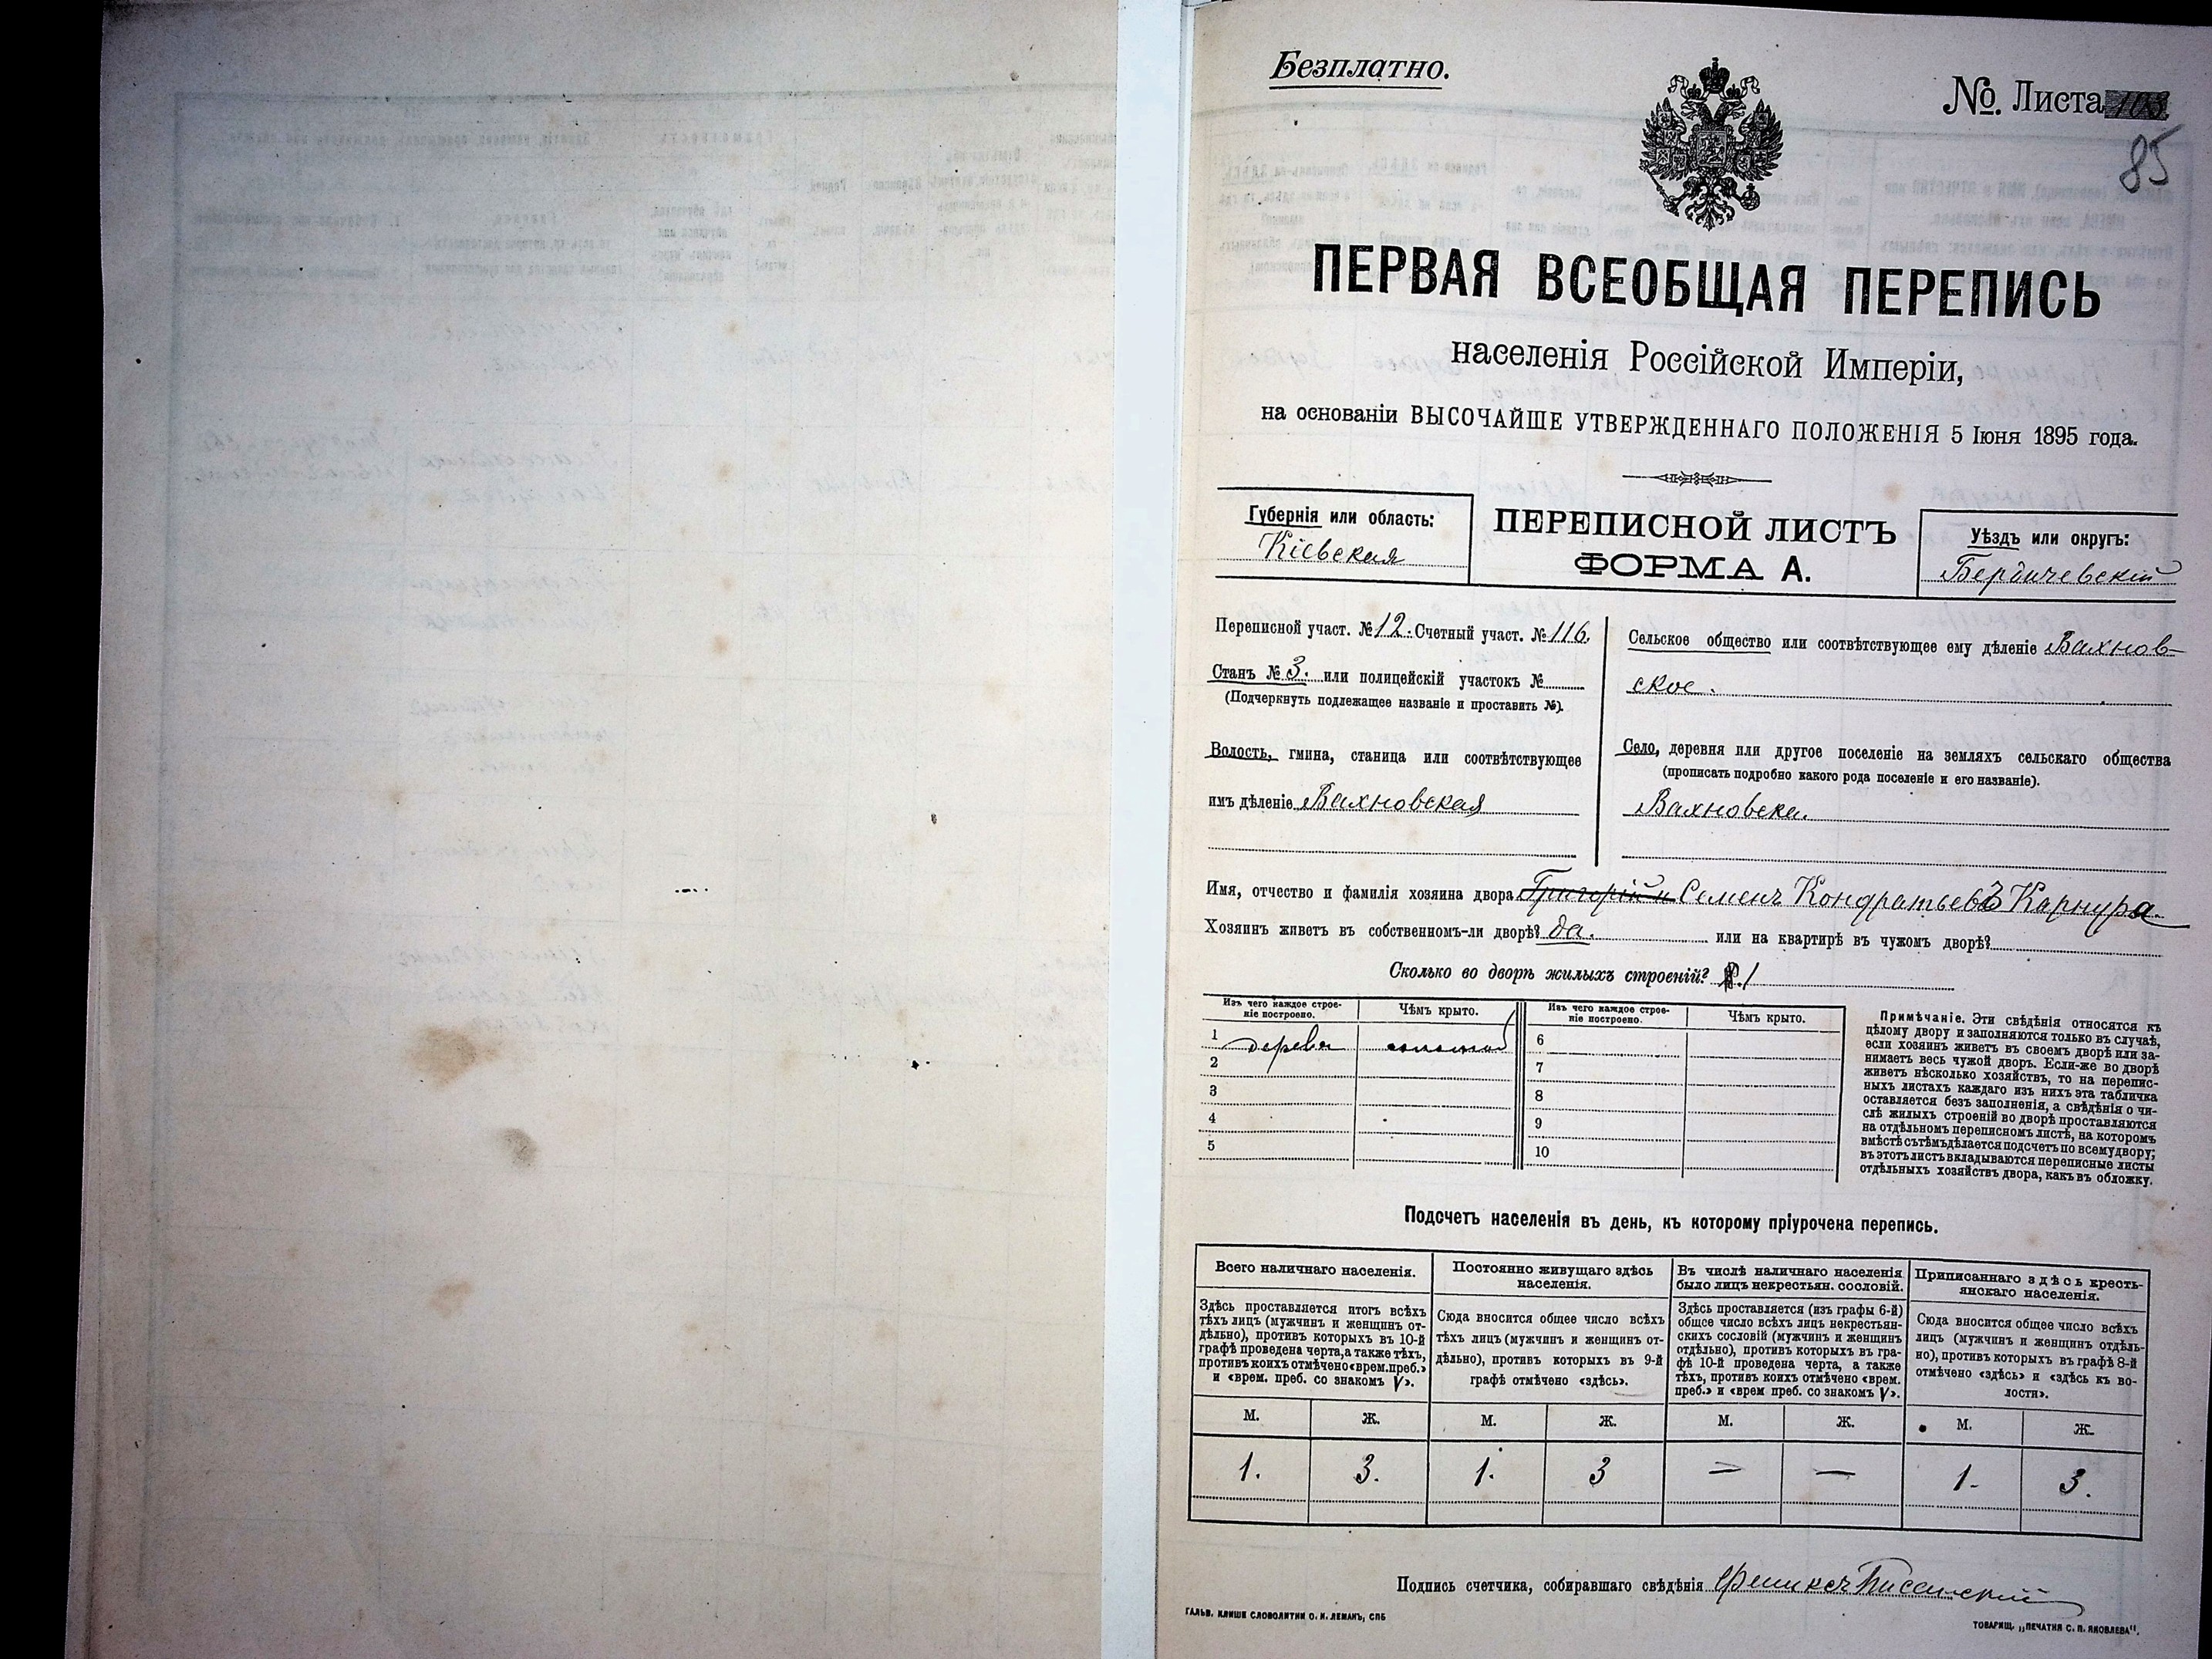 Безплатно.
№ Листа 103
85
ПЕРВАЯ ВСЕОБЩАЯ ПЕРЕПИСЬ
населенія Россійской Имперіи,
на основаніи ВЫСОЧАЙШЕ УТВЕРЖДЕННАГО ПОЛОЖЕНІЯ 5 Іюня 1895 года.
Губернія или область:
Кіевская
ПЕРЕПИСНОЙ ЛИСТЪ
ФОРМА А.
Уѣздъ или округъ:
Бердичевскій
Переписной участ. № 12. Счетный участ. № 116.
Станъ № 3. или полицейскій участокъ №
(Подчеркнуть подлежащее названіе и проставить №).
Волость, гмина, станица или соотвѣтствующее
имъ дѣленіе Вахновская
Сельское общество или соотвѣтствующее ему дѣленіе Вахнов-
ское.
Село, деревня или другое поселеніе на земляхъ сельскаго общества
(прописать подробно какого рода поселеніе и его названіе).
Вахновка.
Имя, отчество и фамилія хозяина двора Григорій и Семенъ Кондратьевъ Карнура.
Хозяинъ живетъ въ собственномъ-ли дворѣ? да. или на квартирѣ въ чужомъ дворѣ?
Сколько во дворѣ жилыхъ строеній? 1
Изъ чего каждое строе-
ніе построено.
Чѣмъ крыто.
Изъ чего каждое строе-
ніе построено.
Чѣмъ крыто.
1 дерева соломой 6
2 7
3 8
4 9
5 10
Примѣчаніе. Эти свѣдѣнія относятся къ
цѣлому двору и заполняются только въ случаѣ,
если хозяинъ живетъ въ своемъ дворѣ или за-
нимаетъ весь чужой дворъ. Если-же во дворѣ
живетъ нѣсколько хозяйствъ, то на перепис-
ныхъ листахъ каждаго изъ нихъ эта табличка
оставляется безъ заполненія, а свѣдѣнія о чи-
слѣ жилыхъ строеній во дворѣ проставляются
на отдѣльномъ переписномъ листѣ, на которомъ
вмѣстѣ съ тѣмъ дѣлается подсчетъ по всему двору;
въ этотъ листъ вкладываются переписные листы
отдѣльныхъ хозяйствъ двора, какъ въ обложку.
Подсчетъ населенія въ день, къ которому пріурочена перепись.
Всего наличнаго населенія.
Здѣсь проставляется итогъ всѣхъ
тѣхъ лицъ (мужчинъ и женщинъ от-
дѣльно), противъ которыхъ въ 10-й
графѣ проведена черта, а также тѣхъ,
противъ коихъ отмѣчено «врем. преб.»
и «врем. преб. со знакомъ V».
Постоянно живущаго здѣсь
населенія.
Сюда вносится общее число всѣхъ
тѣхъ лицъ (мужчинъ и женщинъ от-
дѣльно), противъ которыхъ въ 9-й
графѣ отмѣчено «здѣсь».
Въ числѣ наличнаго населенія
было лицъ некрестьян. сословій.
Здѣсь проставляется (изъ графы 6-й)
общее число всѣхъ лицъ некрестьян-
скихъ сословій (мужчинъ и женщинъ
отдѣльно), противъ которыхъ въ гра-
фѣ 10-й проведена черта, а также
тѣхъ, противъ коихъ отмѣчено «врем.
преб.» и «врем преб. со знакомъ V».
Приписаннаго здѣсь кресть-
янскаго населенія.
Сюда вносится общее число всѣхъ
лицъ (мужчинъ и женщинъ отдѣль-
но), противъ которыхъ въ графѣ 8-й
отмѣчено «здѣсь» и «здѣсь къ во-
лости».
М. Ж. М. Ж. М. Ж. М. Ж.
1. 3. 1. 3 — — 1. 3.
Подпись счетчика, собиравшаго свѣдѣнія Феликсъ
ГАЛЬВ. КЛИШЕ СЛОВОЛИТНИ О. И. ЛЕМАНЪ, СПБ
ТОВАРИЩ. „ПЕЧАТНЯ С. П. ЯКОВЛЕВА“.